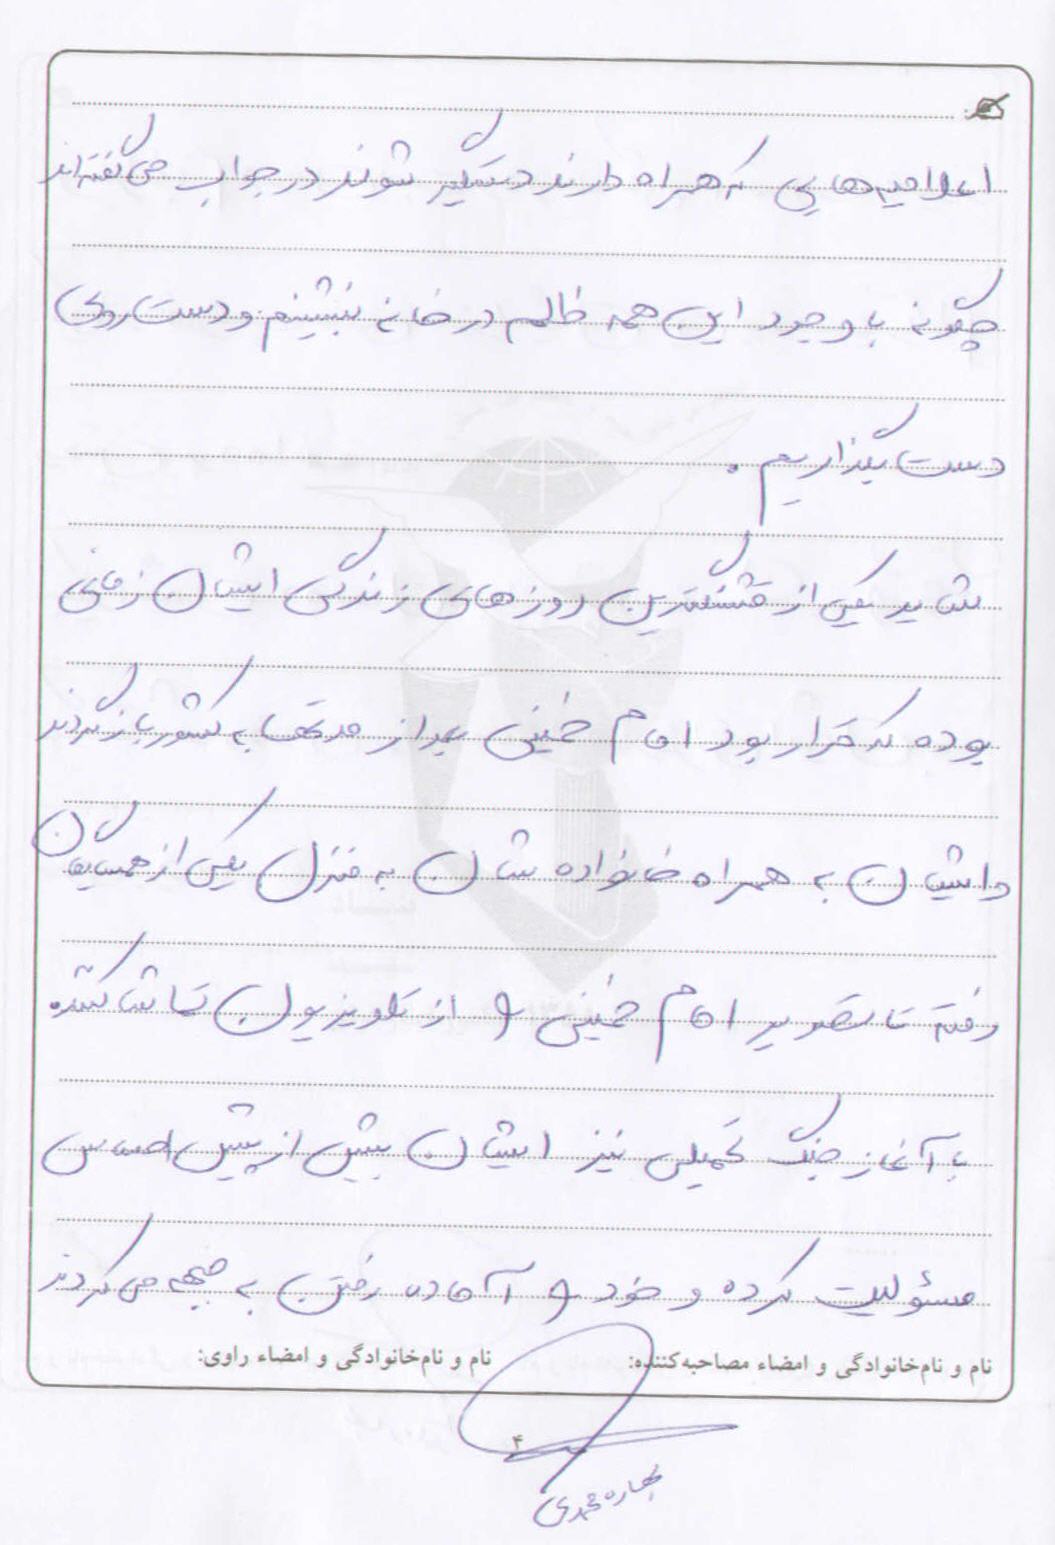 اعلامیه‌هایی که همراه دارند دستگیر شوند در جواب می‌گفته‌اند
چگونه با وجود این همه ظلم در خانه بنشینم و دست روی
دست بگذاریم.
شاید یکی از قشنگترین روزهای زندگی ایشان زمانی
بوده که قرار بود امام خمینی بعد از مدتها به کشور بازگردند
و ایشان به همراه خانواده شان به منزل یکی از همسایگان
رفته تا تصویر امام خمینی را از تلویزیون تماشا کنند
با آغاز جنگ تحمیلی نیز ایشان بیش از پیش احساس
مسئولیت کرده و خود را آماده رفتن به جبهه می‌کردند
نام و نام‌خانوادگی و امضاء مصاحبه‌کننده: نام و نام‌خانوادگی و امضاء راوی:
۴
بهاره محمدی